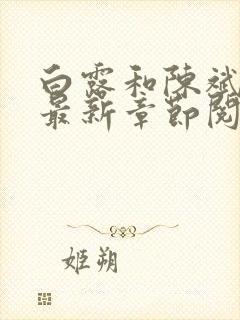 白露和陳斌
最新章節閱
姬朔